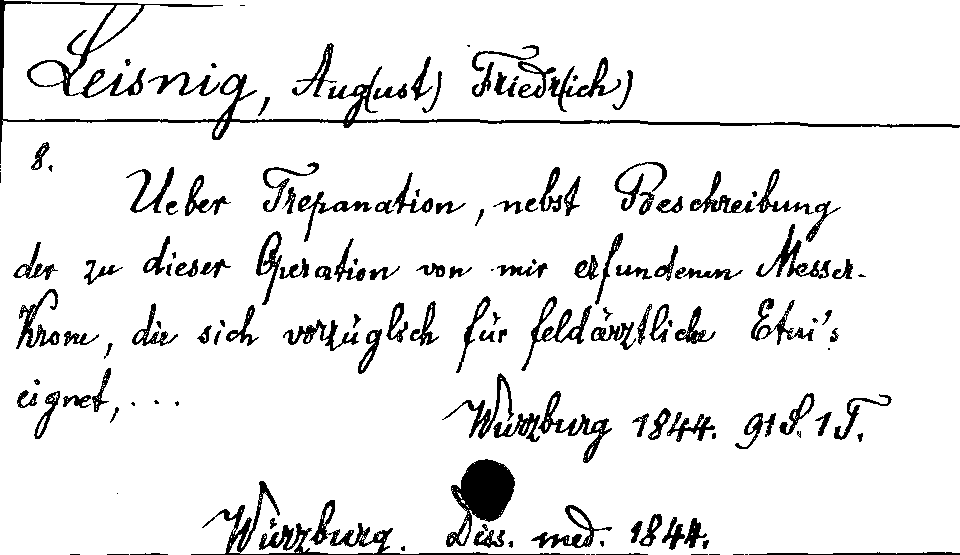 Leisnig, Aug(ust) Friedr(ich)
8.
Ueber Trepanation, nebst Beschreibung
der zu dieser Operation von mir erfundenen Messer-
Krone, die sich vorzüglich für feldärztliche Etui's
eignet, ...
Würzburg 1844. 91 S. 1 T.
Würzburg. Diss. med. 1844.